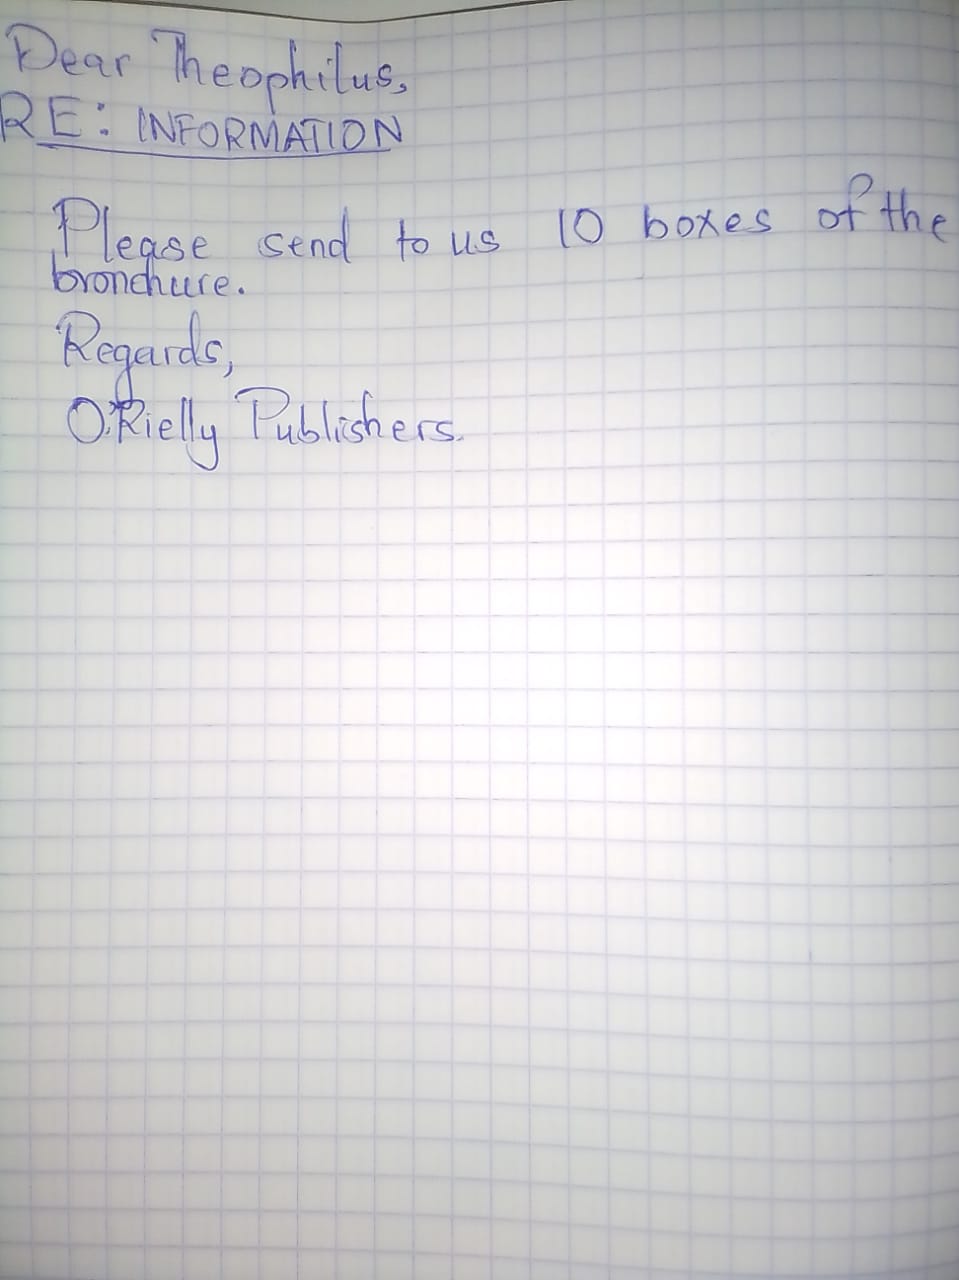 Dear Theophilus,
RE: INFORMATION
Please send to us 10 boxes of the
bronchure.
Regards,
O'Rielly Publishers.